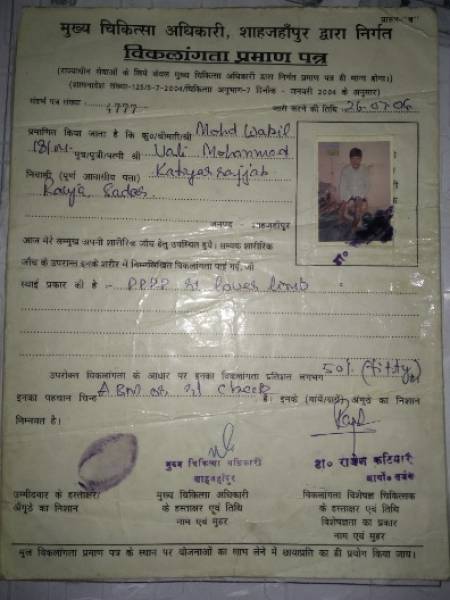 प्रारूप "ब"
मुख्य चिकित्सा अधिकारी, शाहजहाँपुर द्वारा निर्गत
विकलांगता प्रमाण पत्र
(राज्याधीन सेवाओं के लिये केवल मुख्य चिकित्सा अधिकारी द्वारा निर्गत प्रमाण पत्र ही मान्य होगा।)
(शासनादेश संख्या-125/5-7-2004/चिकित्सा अनुभाग-7 दिनांक - जनवरी 2004 के अनुसार)
संदर्भ पत्र संख्या 4777 जारी करने की तिथि 26-07-06
प्रमाणित किया जाता है कि कु०/श्रीमती/श्री Mohd Wakil
18/M पुत्र/पुत्री/पत्नी श्री Vali Mohammad
निवासी (पूर्ण आवासीय पता)
जनपद - शाहजहाँपुर
आज मेरे सम्मुख अपनी शारीरिक जाँच हेतु उपस्थित हुये। सम्यक शारीरिक
जाँच के उपरान्त इनके शरीर में निम्नलिखित विकलांगता पाई गई, जो
स्थाई प्रकार की है - P.P.R.P lower limb
उपरोक्त विकलांगता के आधार पर इनका विकलांगता प्रतिशत लगभग 50% (fifty) है
इनका पहचान चिन्ह A BM on cheek है। इनके (बायें/दायें) अंगूठे का निशान
निम्नवत है।
मुख्य चिकित्सा अधिकारी
शाहजहाँपुर
डा० राजेश कटियार
उम्मीदवार के हस्ताक्षर मुख्य चिकित्सा अधिकारी विकलांगता विशेषज्ञ चिकित्सक
अंगूठे का निशान के हस्ताक्षर एवं तिथि के हस्ताक्षर एवं तिथि
नाम एवं मुहर विशेषज्ञता का प्रकार
नाम एवं मुहर
मूल विकलांगता प्रमाण पत्र के स्थान पर योजनाओं का लाभ लेने में छायाप्रति का ही प्रयोग किया जाय।